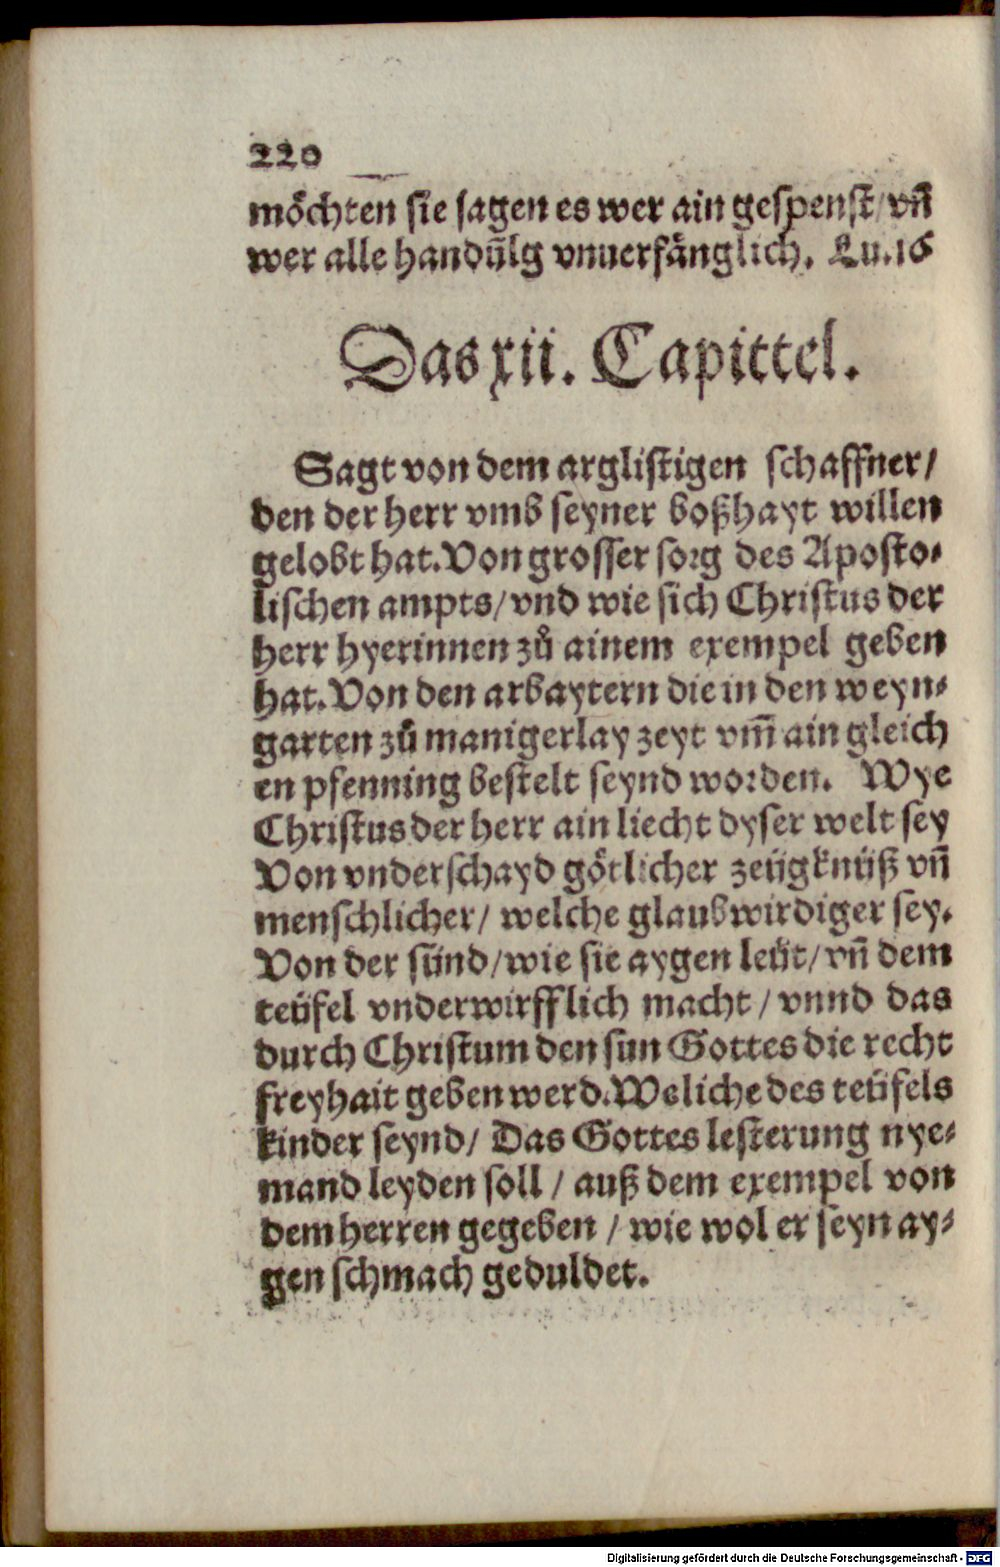 220
möchten sie sagen es wer ain gespenst/ vn̄
wer alle handūlg vnuerfänglich. Lu.16
Das xii. Capittel.
Sagt von dem arglistigen schaffner/
den der herr vmb seyner boßhayt willen
gelobt hat. Von grosser sorg des Aposto⸗
lischen ampts/ vnd wie sich Christus der
herr hyerinnen zů ainem exempel geben
hat. Von den arbaytern die in den weyn⸗
garten zů manigerlay zeyt vm̄ ain gleich
en pfenning bestelt seynd worden. Wye
Christus der herr ain liecht dyser welt sey
Von vnderschayd götlicher zeügknüß vn̄
menschlicher/ welche glaubwirdiger sey.
Von der sünd/ wie sie aygen leüt/ vn̄ dem
teüfel vnderwirfflich macht/ vnnd das
durch Christum den sun Gottes die recht
freyhait geben werd. Weliche des teüfels
kinder seynd/ Das Gottes lesterung nye⸗
mand leyden soll/ auß dem exempel von
dem herren gegeben/ wie wol er seyn ay⸗
gen schmach geduldet.
Digitalisierung gefördert durch die Deutsche Forschungsgemeinschaft - DFG